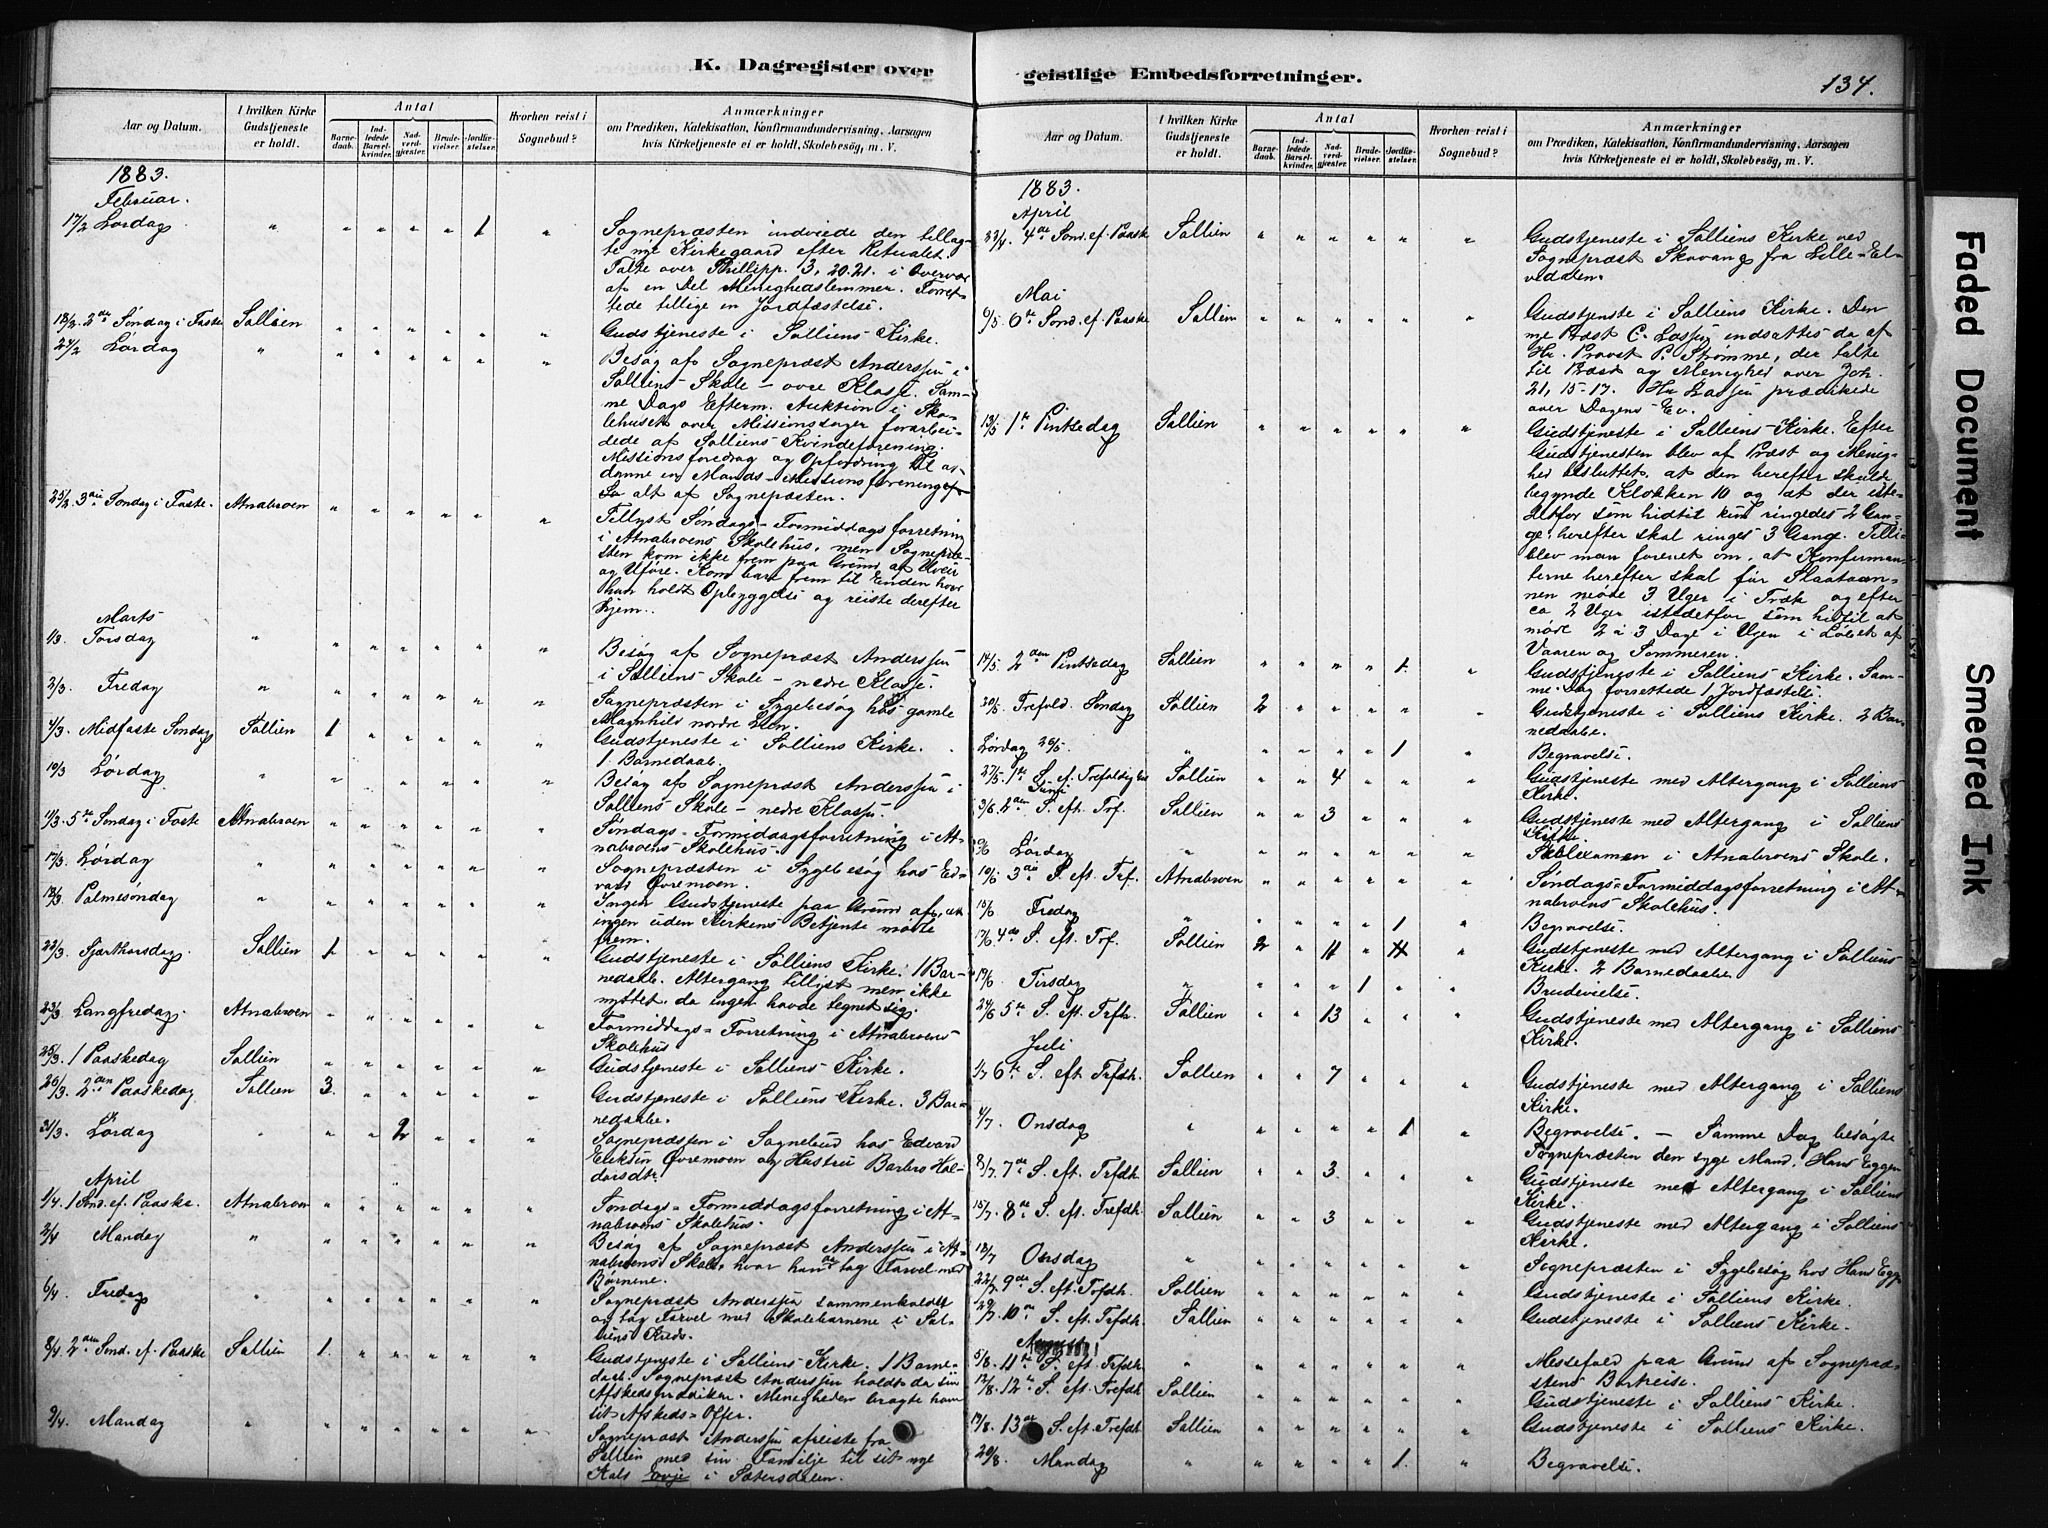 K. Dagregister over
Aar og Datum.
I hvilken Kirke
Gudstjeneste
er holdt.
Antal
Barne-
daab.
Ind-
ledede
Barsel-
kvinder.
Nad-
verd-
gjæster.
Brude-
vielser.
Jordfæ-
stelser.
Hvorhen reist i
Sognebud?
Anmærkninger
om Prædiken, Katekisation, Konfirmandundervisning, Aarsagen
hvis Kirketjeneste ei er holdt, Skolebesög, m. V.
1883.
Februar.
17/2 Lørdag " " " " " 1 " Sognepræsten indviede den tillag-
te nye Kirkegaard efter Ritualet.
Talte over Phillipp. 3, 20.21. i Overvær
af en Del Menighedslemmer. Forret-
tede tillige en Jordfæstelse.
18/2. 2den Søndag i Faste Sollien " " " " " " Gudstjeneste i Solliens Kirke.
24/2 Lørdag " " " " " " " Besøg af Sognepræst Anderssen i
Solliens Skole - øvre Klasse. Sam-
me Dags Efterm. Auktion i Sko-
lehuset over Missionssager forarbei-
dede af Solliens Kvindeforening.
Missionsforedrag og Opfordring til at
danne en Mands-Missionsforening
Sa alt af Sognepræsten.
25/2. 3die Søndag i Faste. Atnabroen " " " " " " Tillyst Søndags-Formiddagsforretning
i Atnabroens Skolehus, men Sognepræ-
sten kom ikke frem paa Grund af Uveir
og Uføre. Kom bare frem til Enden hvor
han holdt Opbyggelse og reiste derefter
hjem.
Marts
1/3. Torsdag " " " " " " " Besøg af Sognepræst Anderssen
i Solliens Skole - nedre Klasse.
2/3. Fredag " " " " " " " Sognepræsten i Sygebesøg hos gamle
Magnhild nordre
4/3. Midfaste Søndag Sollien 1 " " " " " Gudstjeneste i Solliens Kirke.
1 Barnedaab.
10/3 Lørdag " " " " " " " Besøg af Sognepræst Anderssen i
Solliens Skole - nedre Klasse.
11/3. 5te Søndag i Faste Atnabroen " " " " " " Søndags-Formiddagsforretning i At-
nabroens Skolehus.
17/3. Lørdag " " " " " " " Sognepræsten i Sygebesøg hos Ed-
vard Øvremoen.
18/3. Palmesøndag " " " " " " " Ingen Gudstjeneste paa Grund af, at
ingen uden Kirkens Betjente mødte
frem.
22/3. Skjærthorsdag Sollien 1 " " " " " Gudstjeneste i Solliens Kirke. 1 Bar-
nedaab. Altergang tillyst men ikke
nyttet, da ingen havde tegnet sig.
23/3 Langfredag. Atnabroen " " " " " " Formiddags-Forretning i Atnabroens
Skolehus
25/3. 1 Paaskedag Sollien " " " " " " Gudstjeneste i Solliens Kirke.
26/3. 2den Paaskedag Sollien 3. " " " " " Gudstjeneste i Solliens Kirke. 3 Bar-
nedaabe.
31/3. Lørdag " " " 2 " " " Sognepræsten i Sognebud hos Edvard
Eriksen Øvremoen og Hustru Barbro Hal-
dorsdtr.
April
1/4. 1 Sønd. ef. Paaske. Atnabroen " " " " " " Søndags-Formiddagsforretning i At-
nabroens Skolehus.
2/4 Mandag " " " " " " " Besøg af Sognepræst Anderssen i At-
nabroens Skole, hvor han og tog Farvel med
Børnene.
6/4. Fredag " " " " " " " Sognepræst Anderssen sammenkaldte
og tog Farvel med Skolebarnene i Sol-
liens Kreds.
8/4. 2den Sønd. ef. Paaske Sollien 1. " " " " " Gudstjeneste i Solliens Kirke. 1 Barne-
daab. Sognepræst Anderssen holdt da sin
Afskedsprædiken. Menigheden bragte ham
sit Afskeds-Offer.
9/4. Mandag " " " " " " " Sognepræst Anderssen afreiste fra
Sollien med sin Familje til sit nye
Kald i Sætersdalen.
geistlige Embedsforretninger.
134.
Aar og Datum.
I hvilken Kirke
Gudstjeneste
er holdt.
Antal
Barne-
daab.
Ind-
ledede
Barsel-
kvinder.
Nad-
verd-
gjæster.
Brude-
vielser.
Jordfæ-
stelser.
Hvorhen reist i
Sognebud?
Anmærkninger
om Prædiken, Katekisation, Konfirmandundervisning, Aarsagen
hvis Kirketjeneste ei er holdt, Skolebesög, m. V.
1883.
April
22/4. 4de Sønd. ef. Paaske Sollien " " " " " " Gudstjeneste i Solliens Kirke ved
Sognepræst Skavang fra Lille-El-
vedalen.
Mai
6/5. 6te Sønd. ef. Paaske Sollien " " " " " " Gudstjenste i Solliens Kirke. Den
nye Præst C. Lassen indsattes da af
Hr. Provst P. Strømme, der talte
til Præst og Menighed over Joh.
21, 15-17. Hr Lassen prædikede
over Dagens Ev.
13/5 1te Pintsedag Sollien " " " " " " Gudstjeneste i Solliens Kirke. Efter
Gudstjenesten blev af Præst og Menig-
hed besluttet, at den herefter skulde
begynde Klokken 10 og at der iste-
detfor som hidtil kun ringedes 2 Gan-
ge, herefter skal ringes 3 Gange. Tilli-
blev man forenet om, at Konfirman-
terne herefter skal før Slaataan-
nen møde 3 Uger i Træk og efter
ca 2 Uger istedetfor som hidtil at
møde 2 á 3 Dage i Ugen i Løbet af
Vaaren og Sommeren.
14/5. 2den Pintsedag Sollien " " " " 1. " Gudstjeneste i Solliens Kirke. Sam-
me Dag forrettede 1 Jordfæstelse.
20/5. Trefold. Søndag Sollien 2 " " " " " Gudstjeneste i Solliens Kirke. 2 Bar-
nedaabe.
Lørdag 26/5. " " " " " 1 " Begravelse.
27/5. 1te S. ef. Trefoldighed Sollien " " 4 " " " Gudstjeneste med Altergang i Solliens
Kirke.
Juni
3/6. 2den S. eft. Tref. Sollien " " 3 " " " Gudstjeneste med Altergang i Solliens
Kirke
9/6 Lørdag " " " " " " " Skolexamen i Atnabroens Skole.
10/6 3die S. eft. Trf. Atnabroen " " " " " " Søndags-Formiddagsforretning i At-
nabroens Skolehus.
15/6 Fredag " " " " " 1 " Begravelse.
17/6. 4de S. eft. Tref. Sollien 2 " 11 " " Gudstjeneste med Altergang i Solliens
Kirke. 2 Barnedaabe.
19/6 Tirsdag " " " " 1 " " Brudevielse.
24/6 5te S. eft. Trfh. Sollien " " 13 " " " Gudstjeneste med Altergang i Solliens
Kirke.
Juli
1/7 6te S. eft. Trfdh. Sollien " " 7 " " " Gudstjeneste med Altergang i Solliens
Kirke.
4/7. Onsdag " " " " " 1 " Begravelse. - Samme Dag besøgte
Sognepræsten den syge Mand, Hans Eggen
8/7. 7de S. eft. Trfdh. Sollien " " 3. " " " Gudstjeneste med Altergang i Solliens
Kirke.
15/7. 8de S. eft. Trefdh. Sollien " " 3 " " " Gudstjeneste med Altergang i Solliens
Kirke.
18/7 Onsdag " " " " " " " Sognepræsten i Sygebesøg hos Hans Egg
22/7 9de S. eft. Trefdh. Sollien " " " " " " Gudstjeneste i Solliens Kirke.
29/7. 10de S. eft. Trefdh. Sollien " " " " " " Gudstjeneste i Solliens Kirke.
August
5/8. 11te S. eft. Trfdh. " " " " " " " Messefald paa Grund af Sognepræ-
stens Bortreise.
12/8. 12te S. eft. Trefdh Sollien " " " " " " Gudstjeneste i Solliens Kirke.
19/8. 13de S. eft. Trefdh. Sollien " " " " " " Gudstjeneste i Solliens Kirke.
20/8. Mandag " " " " " 1. " Begravelse.
Faded Document
Smeared Ink